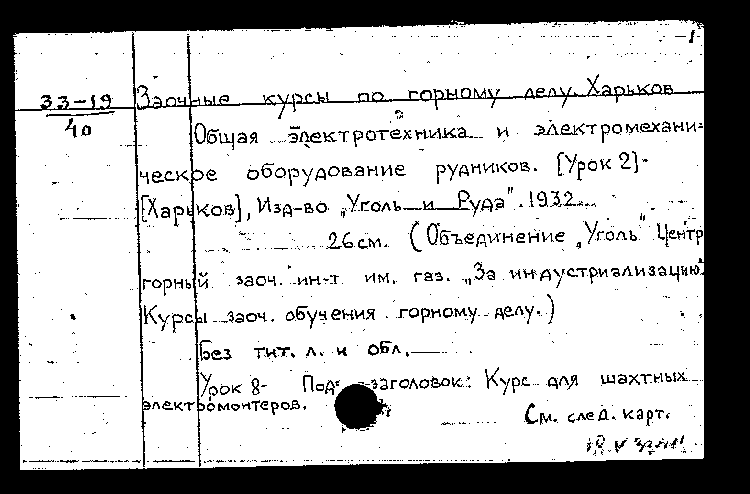 1
33-19
40
Заочные курсы по горному делу. Харьков
Общая электротехника и электромехани-
ческое оборудование рудников. [Урок 2]-
[Харьков], Изд-во „Уголь и Руда". 1932.
26 см. (Объединение „Уголь" Центр
горный заоч. ин-т им. газ. „За индустриализацию".
Курсы заоч. обучения горному делу.)
Без тит. л. и обл.
Урок 8- Под-заголовок: Курс для шахтных
электромонтеров.
См. след. карт.